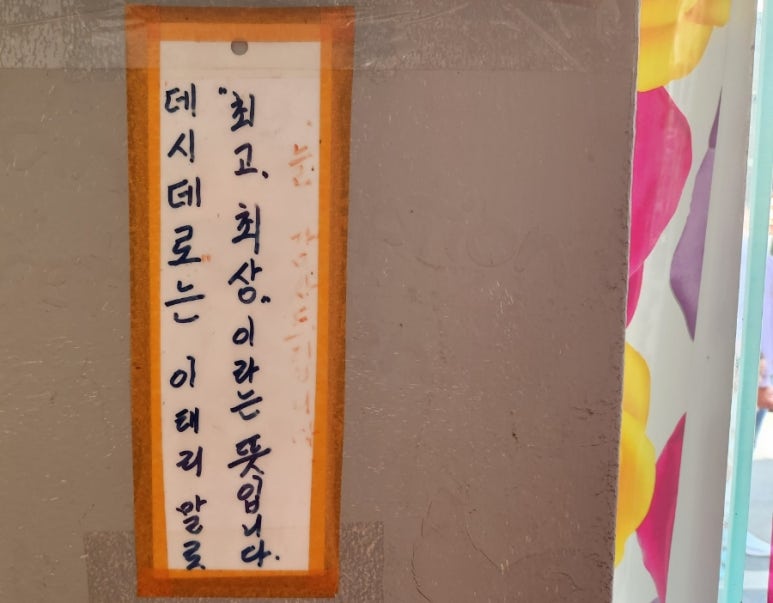 데시데로는 이태리 말로
"최고, 최상"이라는 뜻입니다.